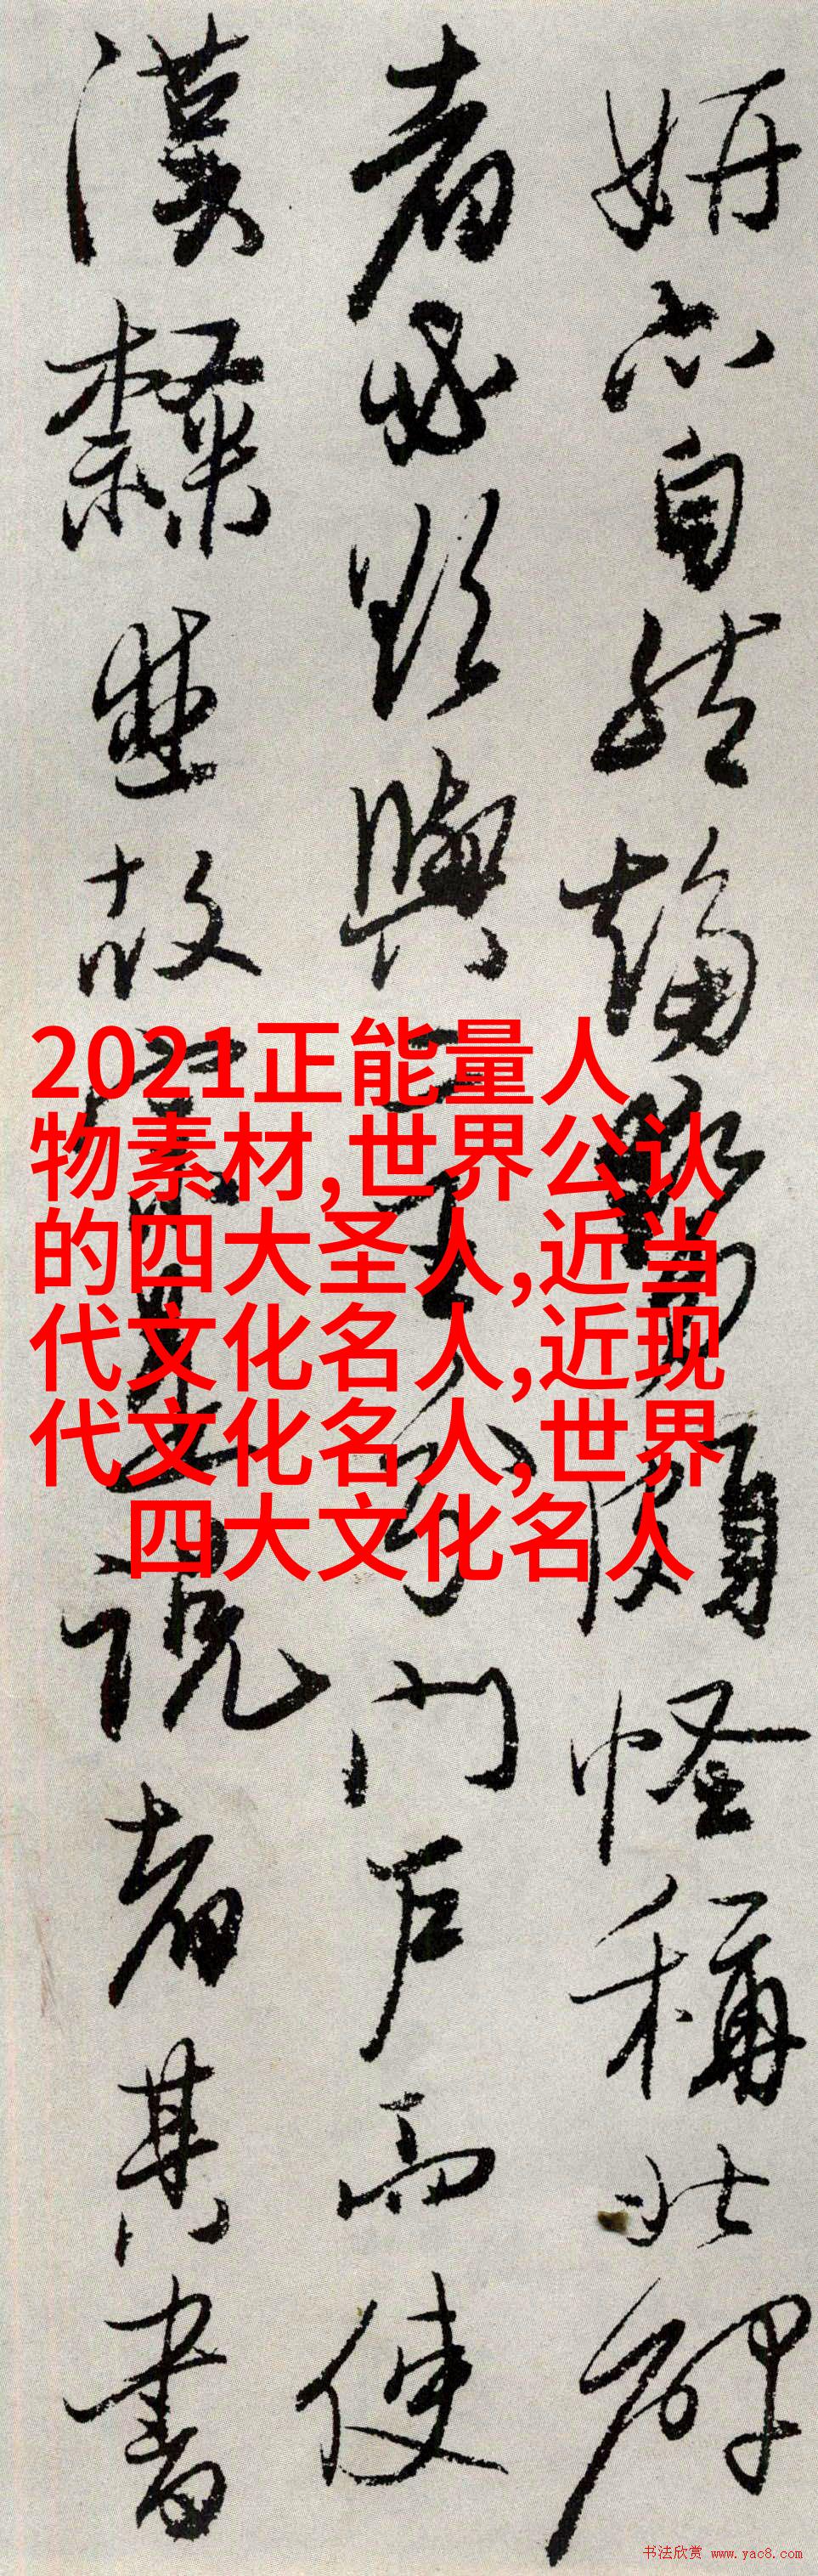 妍亦自然頗怪稱北碑
者必欲與二王分門戶而使
漢隸故說者其書
2021正能量人
物素材,世界公认
的四大圣人,近当
代文化名人,近现
代文化名人,世界
四大文化名人
书法欣赏 www.yac8.com